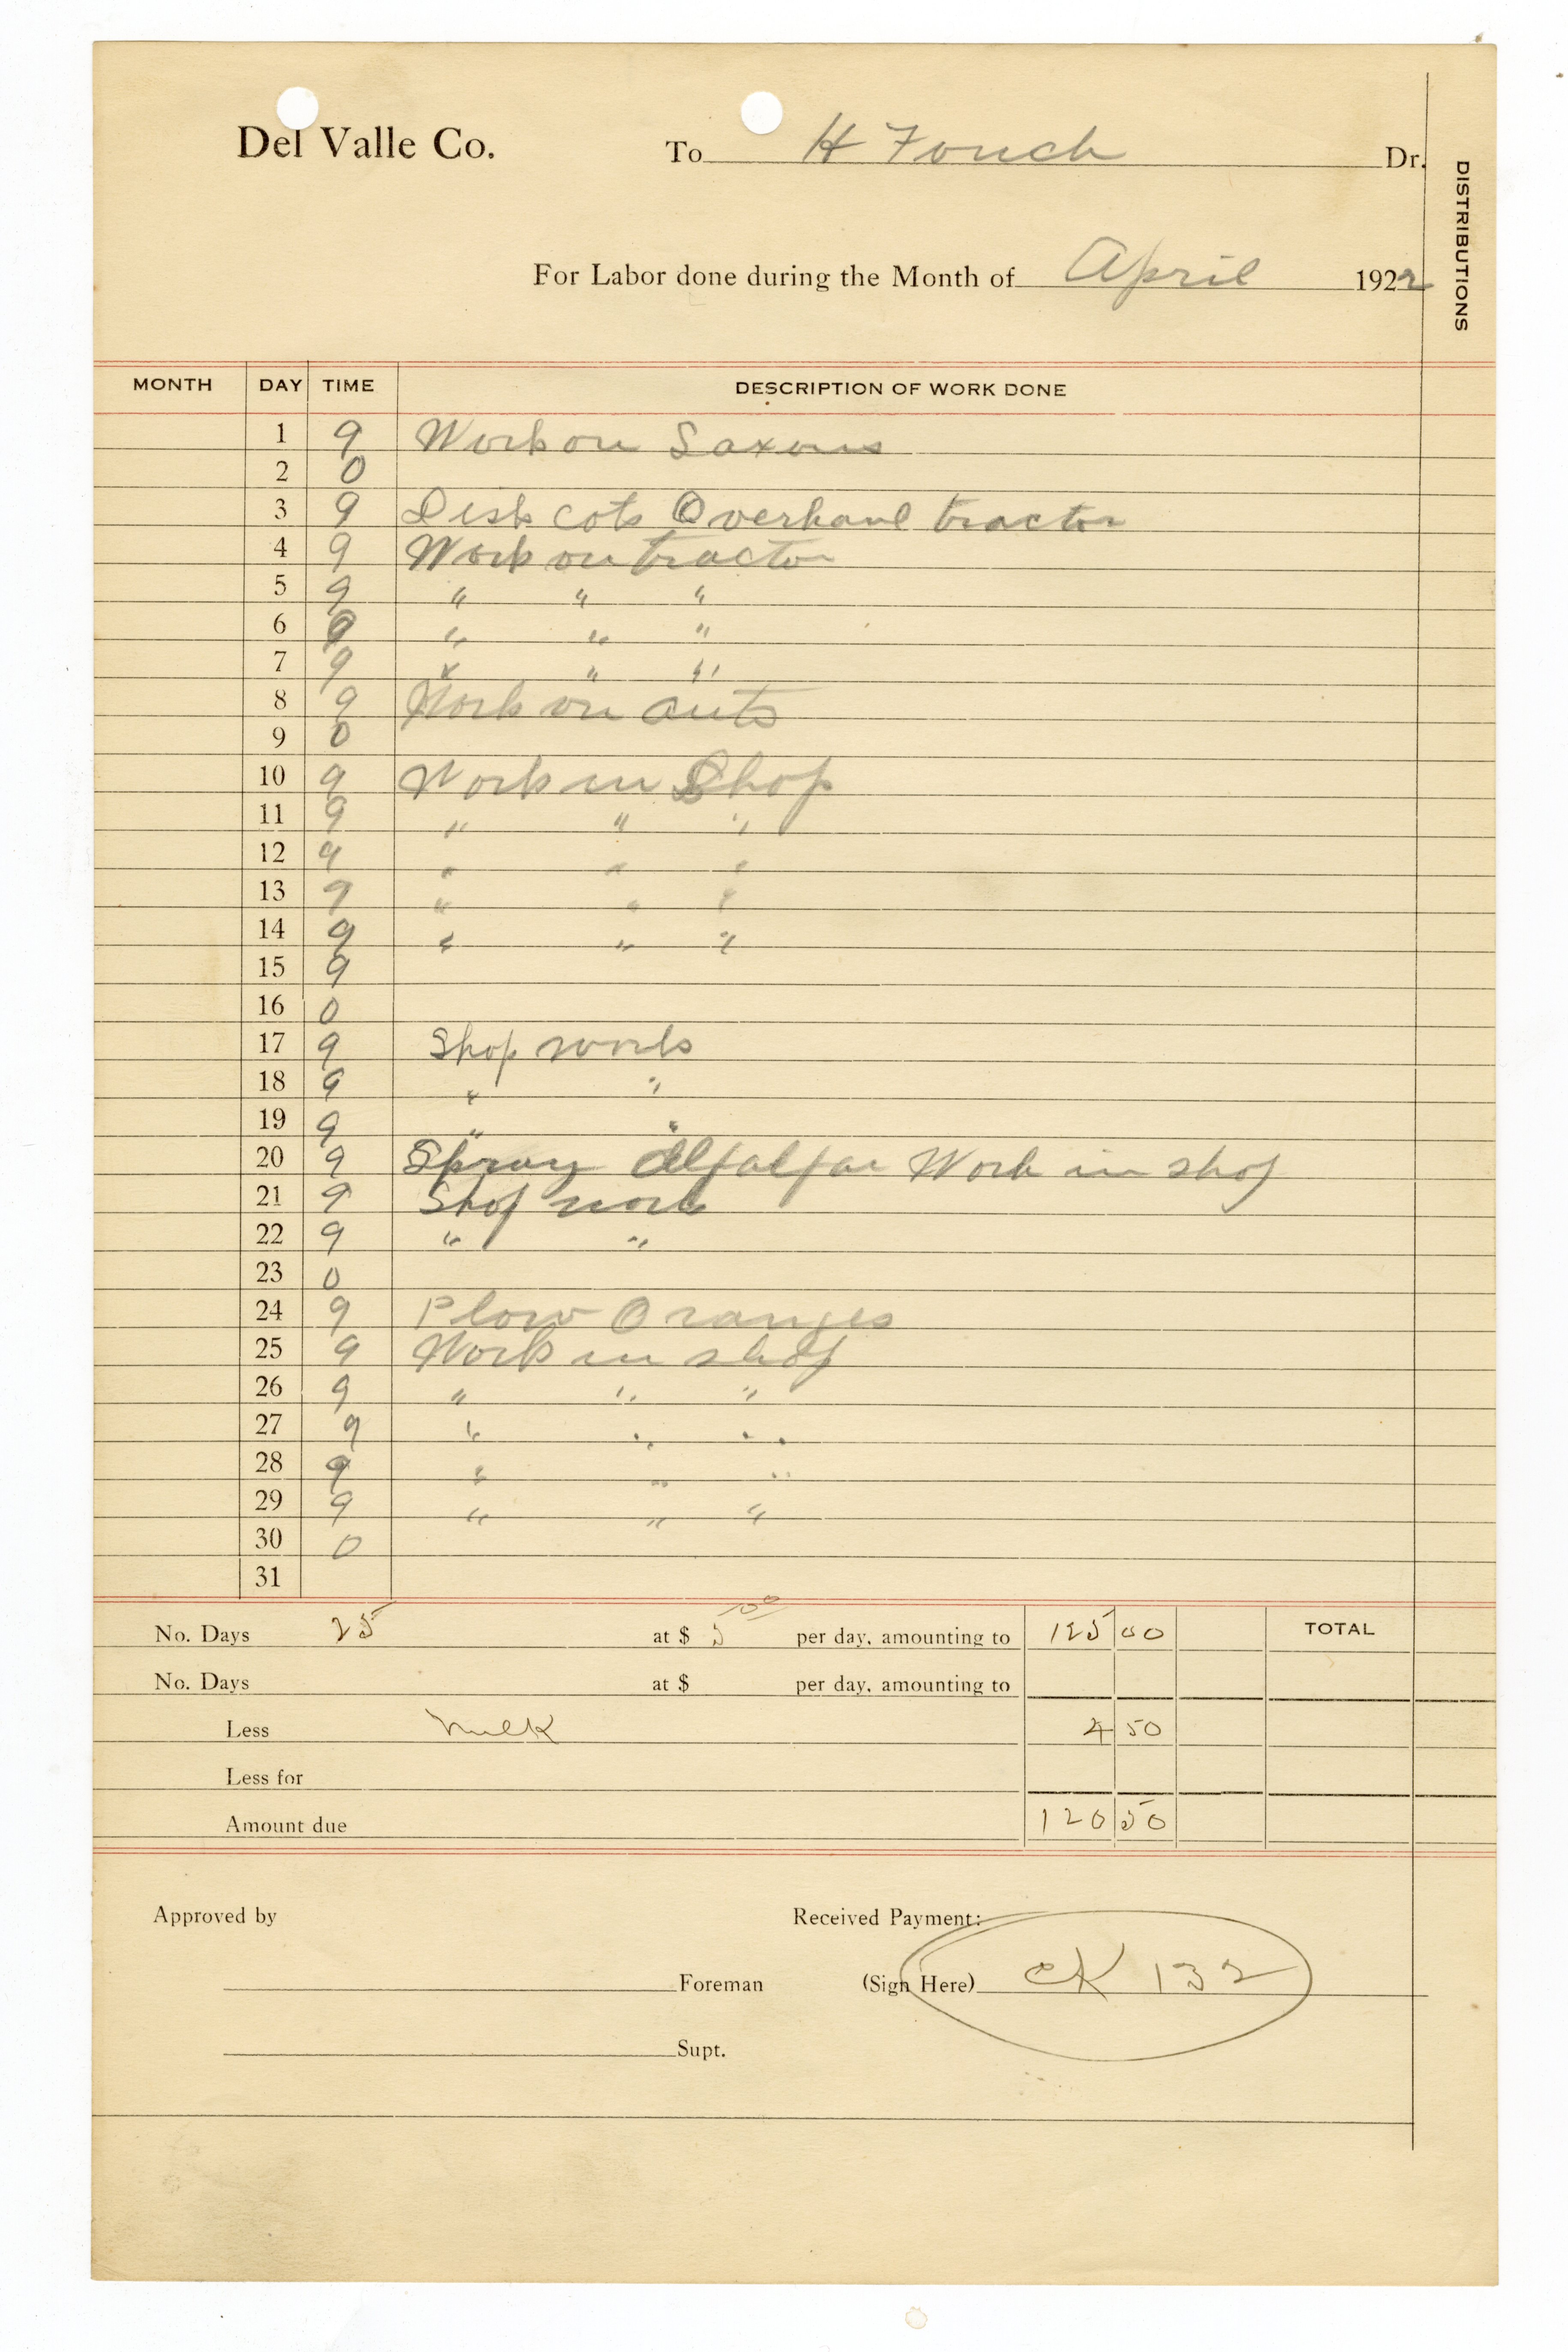 Del Valle Co. To H Fouch Dr.
DISTRIBUTIONS
For Labor done during the Month of April 1922
MONTH DAY TIME DESCRIPTION OF WORK DONE
1 9 Work on Saxons
2 0
3 9 Disk cots Overhaul tractor
4 9 Work on tractor
5 9 " " "
6 9 " " "
7 9 " " "
8 9 Work on auto
9 0
10 9 Work in Shop
11 9 " " "
12 9 " " "
13 9 " " "
14 9 " " "
15 9
16 0
17 9 Shop work
18 9 " "
19 9 " "
20 9 Spray Alfalfar Work in shop
21 9 Shop work
22 9 " "
23 0
24 9 Plow Oranges
25 9 Work in shop
26 9 " " "
27 9 " " "
28 9 " " "
29 9 " " "
30 0
31
No. Days 25 at $ 5 00 per day, amounting to 125 00 TOTAL
No. Days at $ per day, amounting to
Less Milk 4 50
Less for
Amount due 120 50
Approved by Received Payment:
Foreman (Sign Here) CK 132
Supt.